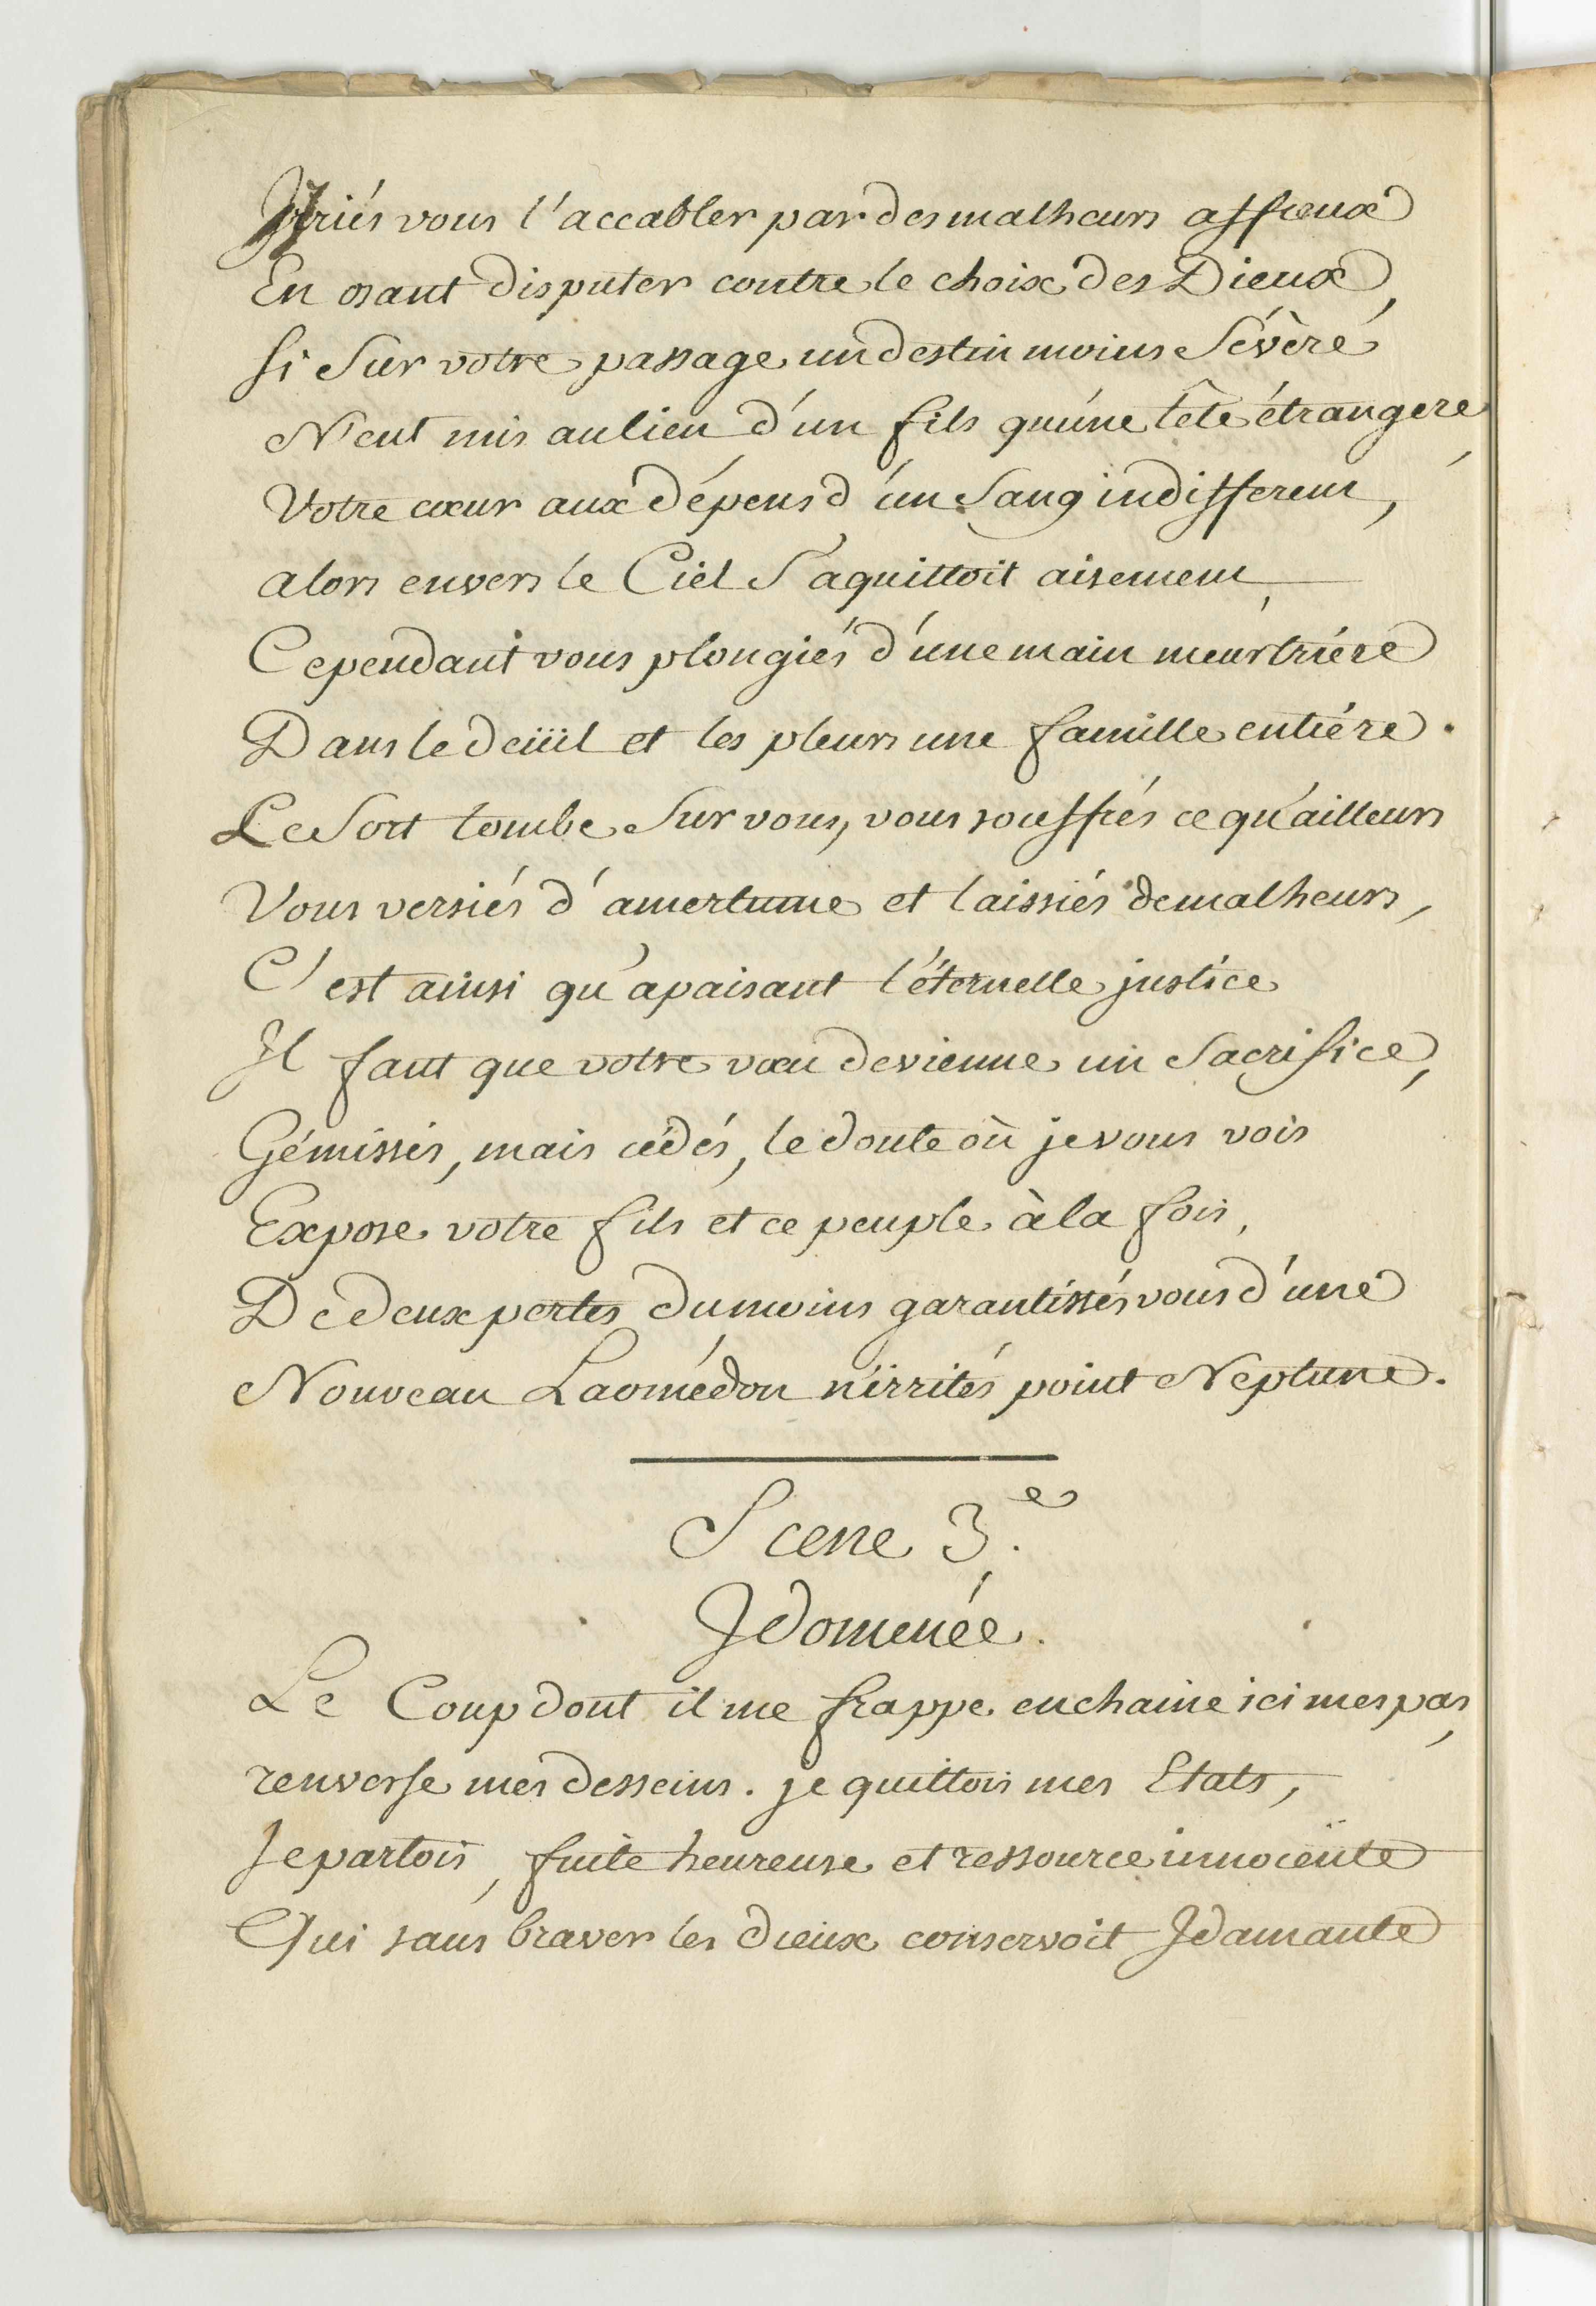 Iriés vous l'accabler par des malheurs affreux
En osant disputer contre le choix des Dieux,
Si Sur votre passage un destin moins Sévère
N'eut mis au lieu d'un fils qu'une tête étrangere,
Votre cœur aux dépens d'un Sang indifferent,
alors envers le Ciel S'aquittoit aisement,
Cependant vous plongiés d'une main meurtriére
Dans le deüil et les pleurs une famille entiére.
Le Sort tombe Sur vous, vous souffrés ce qu'ailleurs
Vous versiés d'amertume et laissiés de malheurs,
C'est ainsi qu'apaisant l'éternelle justice
Il faut que votre vœu devienne un Sacrifice,
Gémissés, mais cédés, le doute où je vous vois
Expose votre fils et ce peuple à la fois,
De deux pertes du moins garantissés vous d'une
Nouveau Laomédon n'irrités point Neptune.
Scene 3.e
Idomenée.
Le Coup dont il me frappe enchaine ici mes pas,
renverse mes desseins. je quittois mes Etats,
Je partois, fuite heureuse et ressource innocente
Qui sans braver les dieux conservoit Idamante